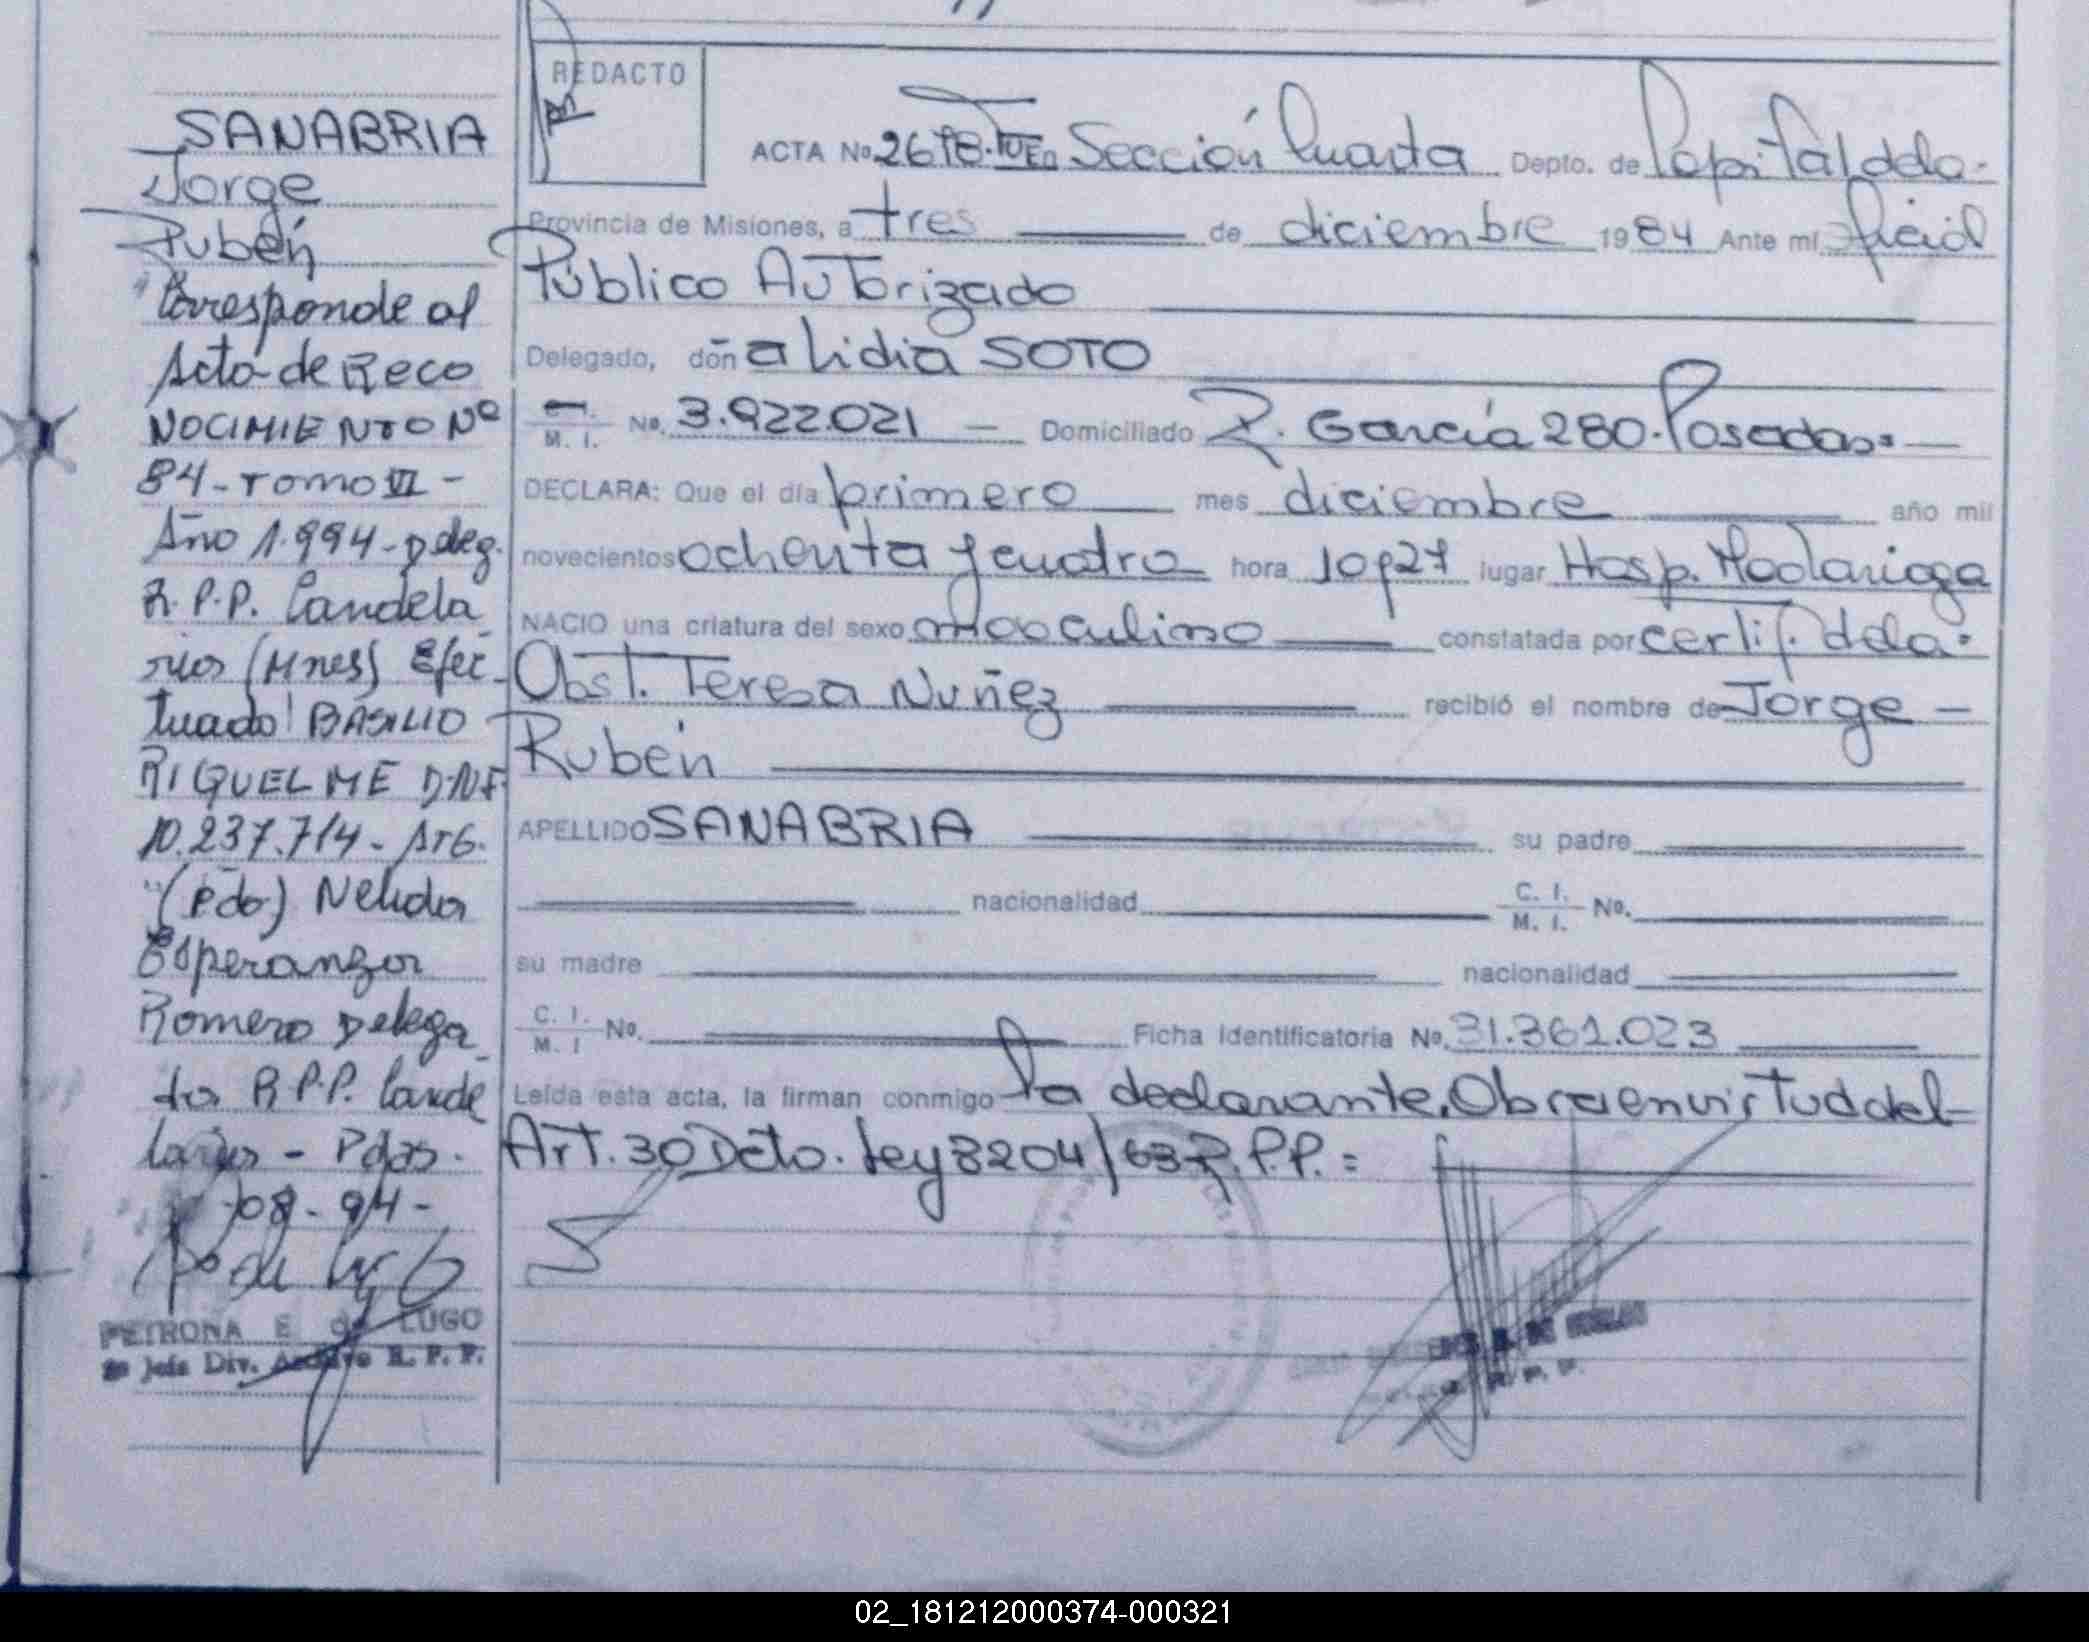 SANABRIA
Jorge
Rubén
Corresponde al
Acta de Reco
NOCIMIENTO Nº
84 - Tomo VI -
Año 1.994 - Deleg.
R.P.P. Candela
rios (Mnes) Efec
tuado! BASILIO
RIQUELME D.N.I.
10.237.714 - Arg.
(Fdo) Nelida
Esperanza
Romero Delega
da R.P.P. Cande
larias - Pdas.
08 - 94 -
PETRONA E de LUGO
Jefa Div. Archivo R. P. P.
REDACTO
ACTA No 2678. Sección Cuarta Depto. de Capital dela.
Provincia de Misiones, a tres de diciembre 1984 Ante mí Oficial
Público Autorizado
Delegado, doña Lidia SOTO
M. I. No. 3.922.021 - Domiciliado R. García 280. Posadas. -
DECLARA: Que el día primero mes diciembre año mil
novecientos ochenta y cuatro hora 10 y 27 lugar Hosp. Madariaga
NACIO una criatura del sexo masculino constatada por certif. dela.
Obst. Teresa Nuñez recibió el nombre de Jorge -
Rubén
APELLIDO SANABRIA su padre
nacionalidad C. I. M. I. No.
su madre nacionalidad
C. I. M. I No. Ficha Identificatoria No. 31.361.023
Leída esta acta, la firman conmigo la declarante. Obra en virtud del
Art. 30 Dcto. Ley 8204/63 R.P.P. =
02_181212000374-000321